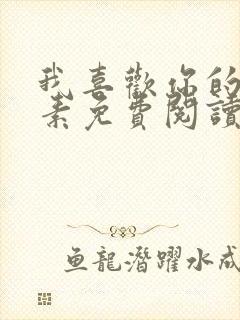 我喜歡你的
素免費閱讀
魚龍潛躍水成